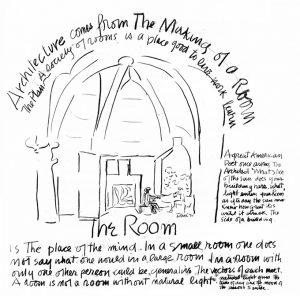 Architecture comes from The Making of a Room
The Plan A society of rooms is a place good to live work learn
A great American
Poet once asked the
Architect 'What slice
of the sun does your
building have, what
light enters your Room
as if to say the sun never
knew how great it is
until it struck the
side of a building
The Room
is The place of the mind. In a small room one does
not say what one would in a large room In a room with
only one other person could be generative The vectors of each meet.
A room is not a room without natural light